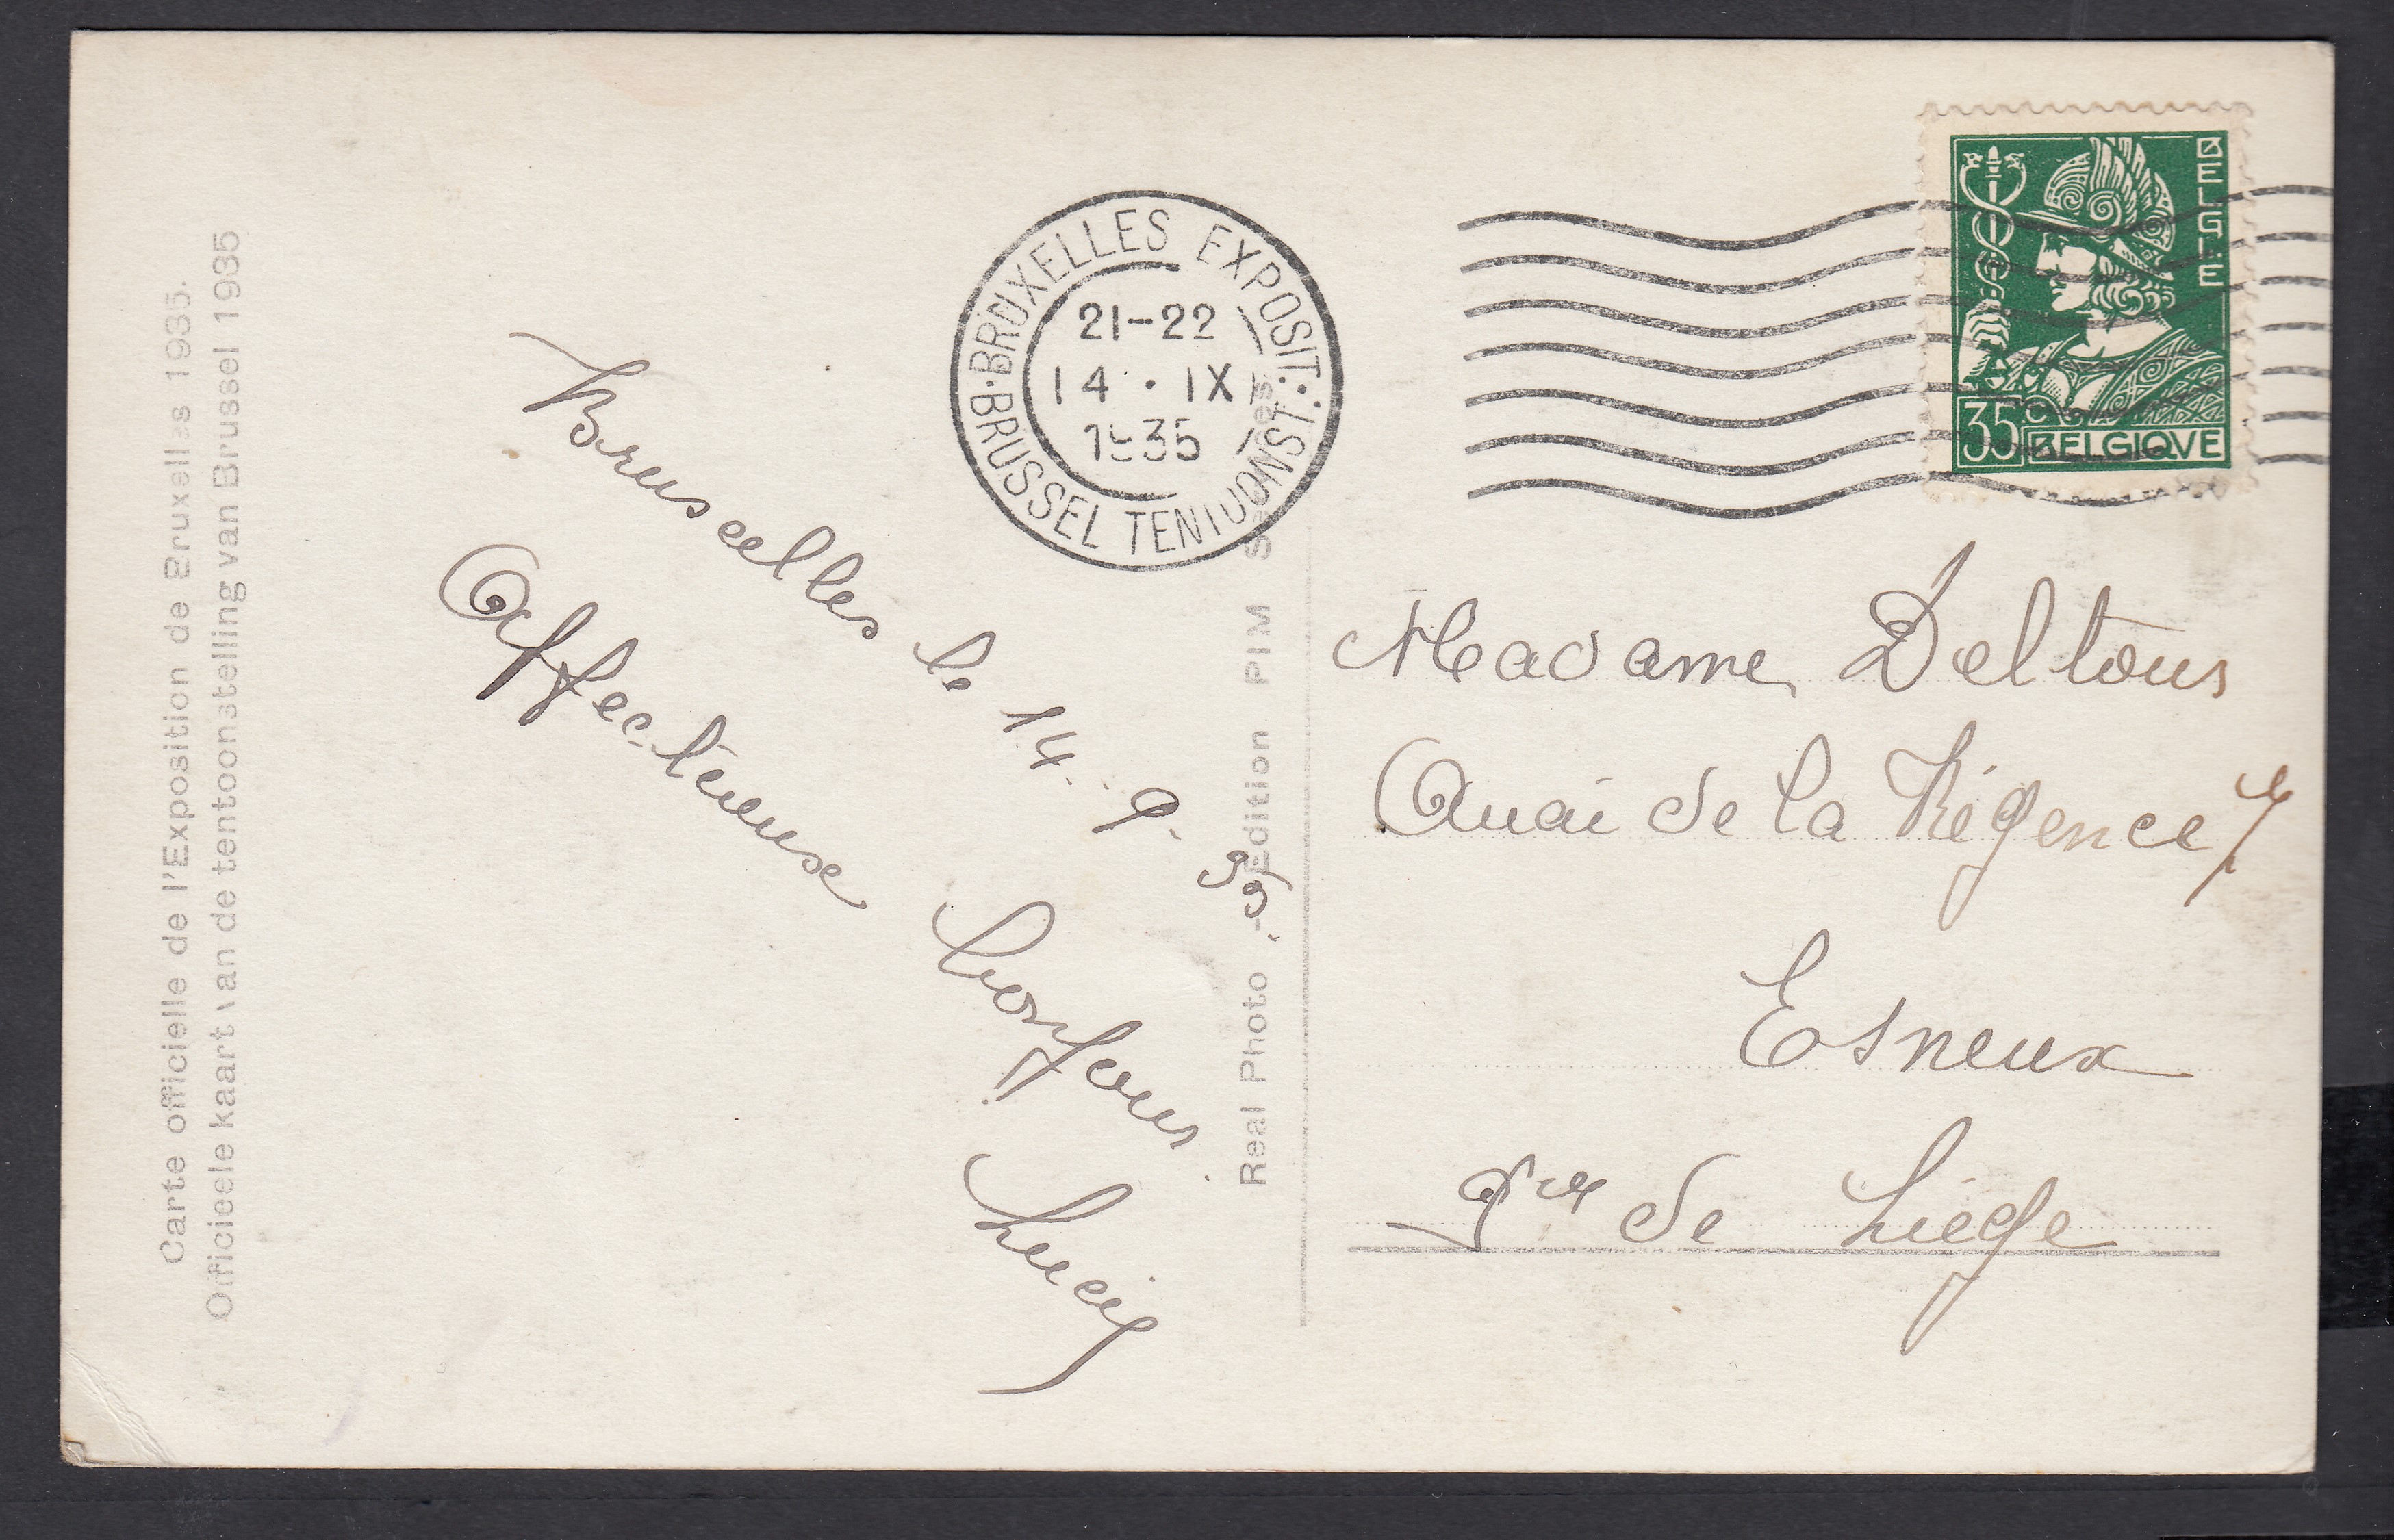 Carte officielle de l'Exposition de Bruxelles 1935.
Officieele kaart van de tentoonstelling van Brussel 1935
Bruxcelles le 14. 9. 35.
Affectueux bonjour.
Lucy
BRUXELLES EXPOSIT.
21-22
14 · IX
1935
BRUSSEL TENTOONST.
Real Photo - Edition PIM
BELGIE
35 C
BELGIQVE
Madame Deltour
Quai de la Régence 7
Esneux
de Liège